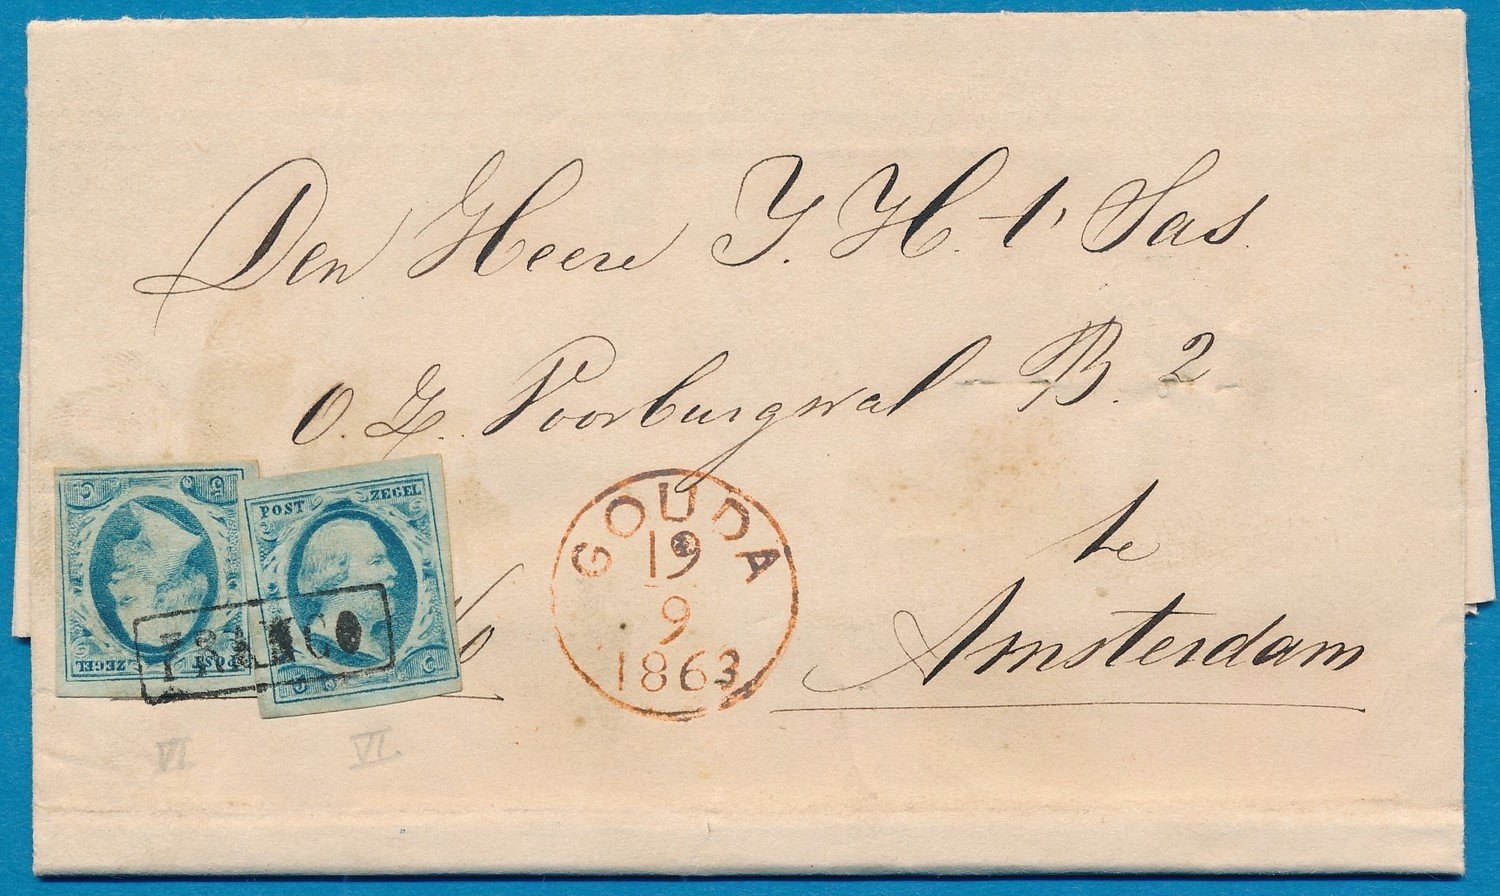 Den Heere J. H. t' Sas.
O. Z. Voorburgwal B. 2
te
Amsterdam
GOUDA
19
9
1863
5 C
POST ZEGEL
POST ZEGEL
5 C
FRANCO
VI
VI